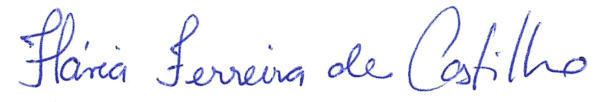 Flávia Ferreira de Castilho